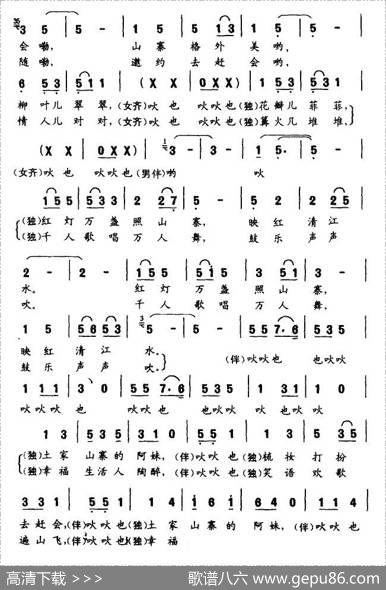 3 5 | 5 - | 1 5 | 5 5 | 1 3 | 5 - |
会嘞, 山寨格外美哟,
随嘞, 邀约去赶会哟,
6 53 | 5 1 1 | (X X | 0 X X) | 1 5 3 | 5 5 3 |
柳叶儿翠翠,(女齐)吙也 吙吙也(独)花瓣儿菲菲,
情人儿对对,(女齐)吙也 吙吙也(独)篝火儿堆堆,
(X X | 0 X X) | 3 - | 3 - | 1 5· | 5 - |
(女齐)吙也 吙吙也(男伴)哟 吙
1 5 5 | 5 3 3 | 2 2 7 | 5 - | 5 2 | 2 2 3 |
(独)红灯万盏照山寨, 映红清江
(独)千人歌唱万人舞, 鼓乐声声
2 - | 2 - | 1 5 5 | 5 1 5 | 3 5 1 | 5 - |
水。 红灯万盏照山寨,
吹。 千人歌唱万人舞,
1 5 | 5 6 5 3 | 5 - | 5 - | 5 5 7· 6 | 5 3 5 |
映红清江水。 (伴)吙吙也 也吙吙
鼓乐声声吹。
1 1 1 | 3 0 | 5 5 | 7· 6 | 5 3 5 | 1 3 1 | 1 0 |
吙吙吙也 吙吙也 也吙吙 吙吙也 吙
1 3 | 5 3 5 | 3 1 0 | 5 5 1 | 1 3 | 5 3 5 |
(独)土家山寨的阿妹,(伴)吙吙也(独)梳妆打扮
(独)幸福生活人陶醉,(伴)吙吙也(独)笑语欢歌
3 3 1 | 5 5 1 | 1 4 | 1 6 1 | 6 4 0 | 1 1 4 |
去赶会,(伴)吙吙也(独)土家山寨的阿妹,(伴)吙吙也
遍山飞,(伴)吙吙也(独)幸福
高清下载 >>>
歌谱八六 www.gepu86.com